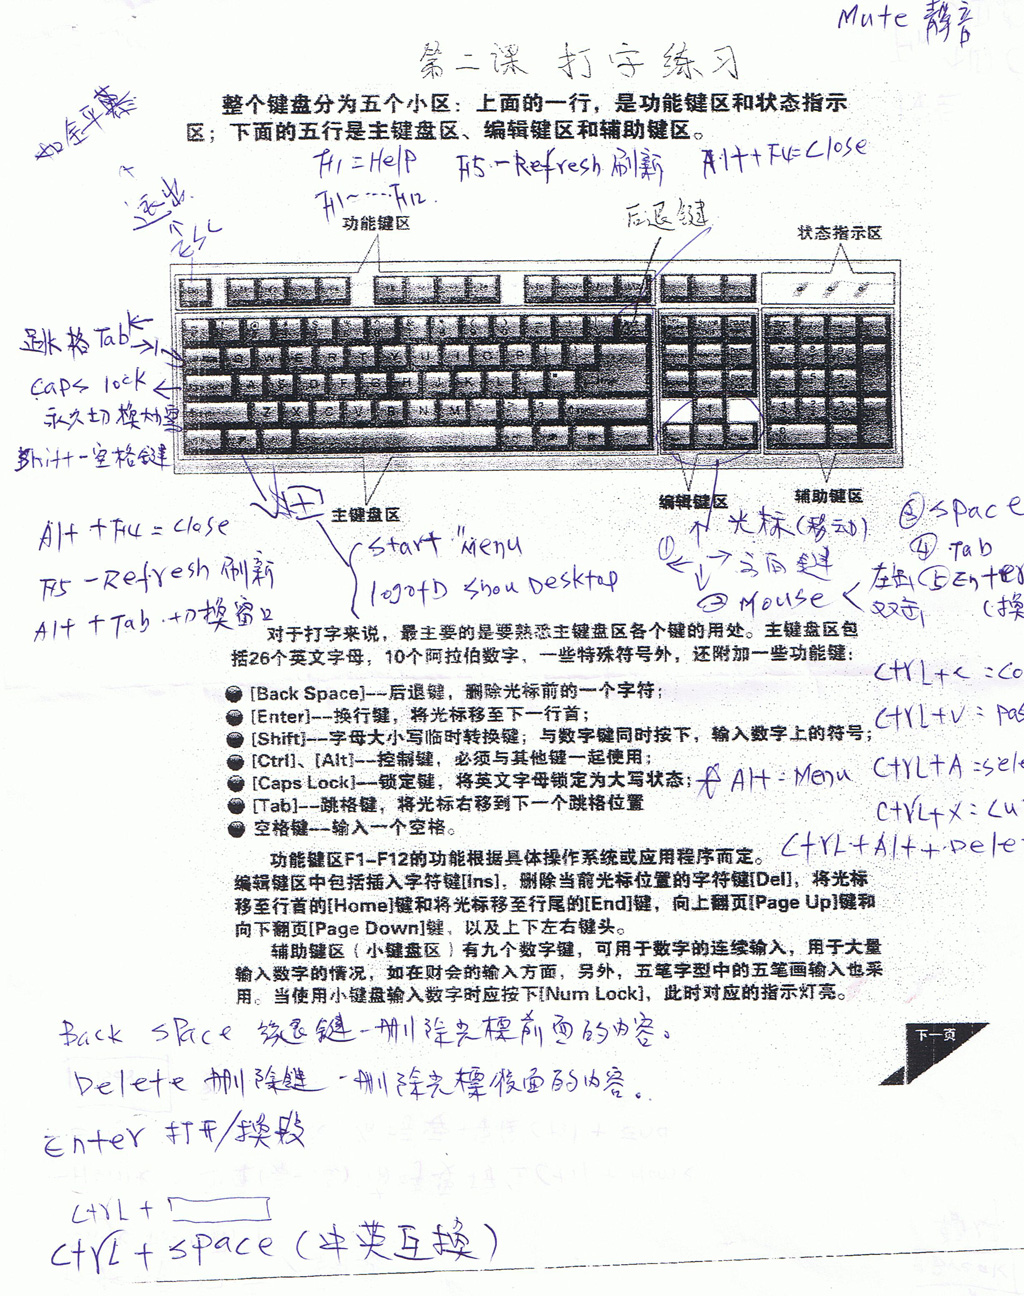 Mute 靜音
第二课 打字练习
整个键盘分为五个小区：上面的一行，是功能键区和状态指示
区；下面的五行是主键盘区、编辑键区和辅助键区。
F1=Help F5-Refresh 刷新 Alt+F4=Close
F1~……F12
退出
ESC
后退键
功能键区
状态指示区
跳格 Tab
Caps lock
永久切换
Shift-空格键
主键盘区
编辑键区
辅助键区
Alt+F4=Close
F5-Refresh 刷新
Alt+Tab 切換窗口
Start "Menu
logo+D Show Desktop
光标(移动)
① 方向键
② Mouse
左击
双击
③ Space
④ Tab
⑤ Enter
(換
对于打字来说，最主要的是要熟悉主键盘区各个键的用处。主键盘区包
括26个英文字母，10个阿拉伯数字，一些特殊符号外，还附加一些功能键：
● [Back Space]--后退键，删除光标前的一个字符；
● [Enter]--换行键，将光标移至下一行首；
● [Shift]--字母大小写临时转换键；与数字键同时按下，输入数字上的符号；
● [Ctrl]、[Alt]--控制键，必须与其他键一起使用；
● [Caps Lock]--锁定键，将英文字母锁定为大写状态；
● [Tab]--跳格键，将光标右移到下一个跳格位置
● 空格键--输入一个空格。
Alt=Menu
Ctrl+C=Co
Ctrl+V=Pas
Ctrl+A=Sele
Ctrl+X=Cu
Ctrl+Alt+Dele
功能键区F1-F12的功能根据具体操作系统或应用程序而定。
编辑键区中包括插入字符键[Ins]，删除当前光标位置的字符键[Del]，将光标
移至行首的[Home]键和将光标移至行尾的[End]键，向上翻页[Page Up]键和
向下翻页[Page Down]键，以及上下左右键头。
辅助键区（小键盘区）有九个数字键，可用于数字的连续输入，用于大量
输入数字的情况，如在财会的输入方面，另外，五笔字型中的五笔画输入也采
用。当使用小键盘输入数字时应按下[Num Lock]，此时对应的指示灯亮。
下一页
Back Space 後退键-删除光標前面的内容。
Delete 删除键-删除光標後面的内容。
Enter 打开/換段
Ctrl+
Ctrl+Space(中英互換)